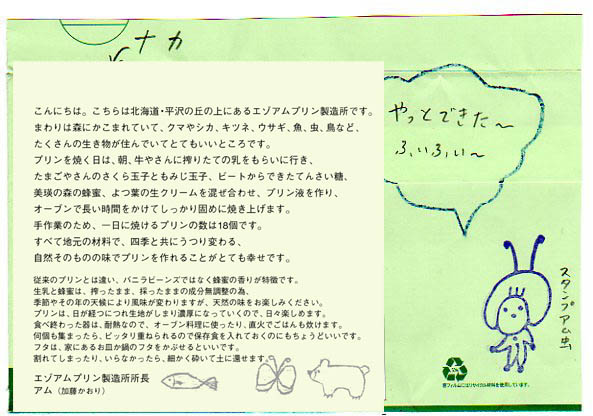 ナカ
こんにちは。こちらは北海道・平沢の丘の上にあるエゾアムプリン製造所です。
まわりは森にかこまれていて、クマやシカ、キツネ、ウサギ、魚、虫、鳥など、
たくさんの生き物が住んでいてとてもいいところです。
プリンを焼く日は、朝、牛やさんに搾りたての乳をもらいに行き、
たまごやさんのさくら玉子ともみじ玉子、ビートからできたてんさい糖、
美瑛の森の蜂蜜、よつ葉の生クリームを混ぜ合わせ、プリン液を作り、
オーブンで長い時間をかけてしっかり固めに焼き上げます。
手作業のため、一日に焼けるプリンの数は18個です。
すべて地元の材料で、四季と共にうつり変わる、
自然そのものの味でプリンを作れることがとても幸せです。
従来のプリンとは違い、バニラビーンズではなく蜂蜜の香りが特徴です。
生乳と蜂蜜は、搾ったまま、採ったままの成分無調整の為、
季節やその年の天候により風味が変わりますが、天然の味をお楽しみください。
プリンは、日が経つにつれ生地がしまり濃厚になっていくので、日々楽しめます。
食べ終わった器は、耐熱なので、オーブン料理に使ったり、直火でごはんも炊けます。
何個も集まったら、ピッタリ重ねられるので保存食を入れておくのにもちょうどいいです。
フタは、家にあるお皿か鍋のフタをかぶせるといいです。
割れてしまったり、いらなかったら、細かく砕いて土に還せます。
エゾアムプリン製造所所長
アム（加藤かおり）
やっとできた〜
ふぃふぃ〜
スタンプアム虫
袋フィルムにはリサイクル材料を使用しています。